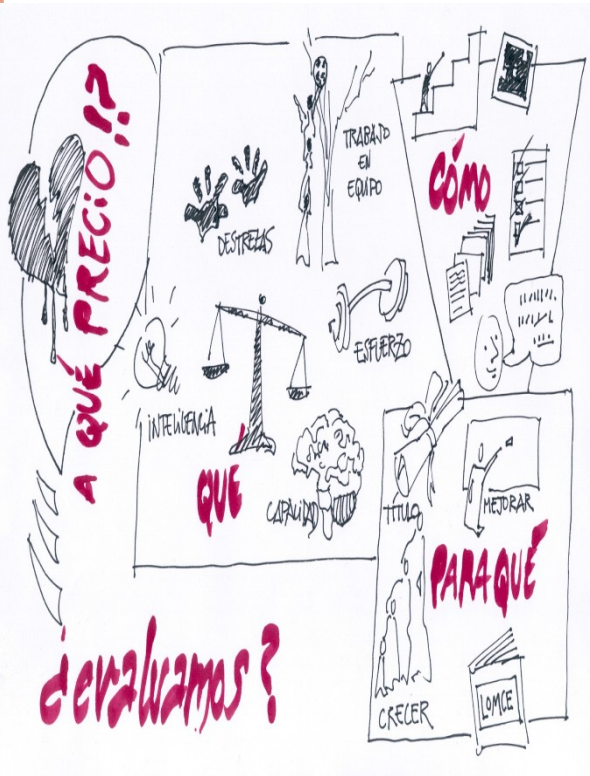 A QUÉ PRECIO!?
DESTREZAS
TRABAJO
EN
EQUIPO
CÓMO
ESFUERZO
INTELIGENCIA
QUÉ
CAPACIDAD
TÍTULO
MEJORAR
PARA QUÉ
CRECER
LOMCE
¿evaluamos?